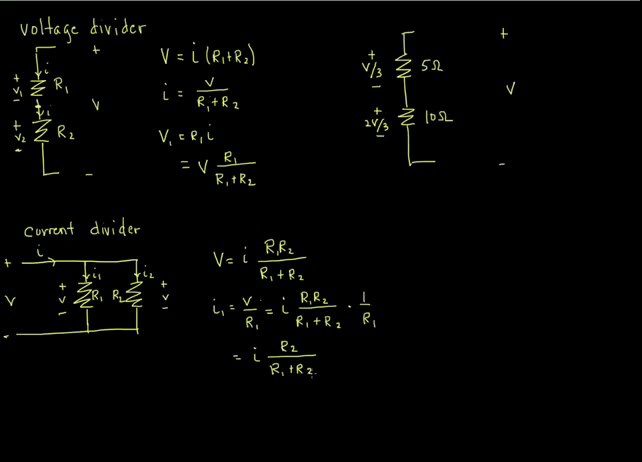 voltage divider
+
i
+
V₁
-
R₁
i
+
V₂
-
R₂
V
-
V = i (R₁+R₂)
i = V / R₁+R₂
V₁ = R₁ i
= V R₁ / R₁+R₂
+
V/3
-
5Ω
+
2V/3
-
10Ω
+
V
-
current divider
i
+
V
-
i₁
+
V
-
R₁
i₂
R₂
+
V
-
V = i R₁R₂ / R₁+R₂
i₁ = V / R₁ = i R₁R₂ / R₁+R₂ · 1 / R₁
= i R₂ / R₁+R₂